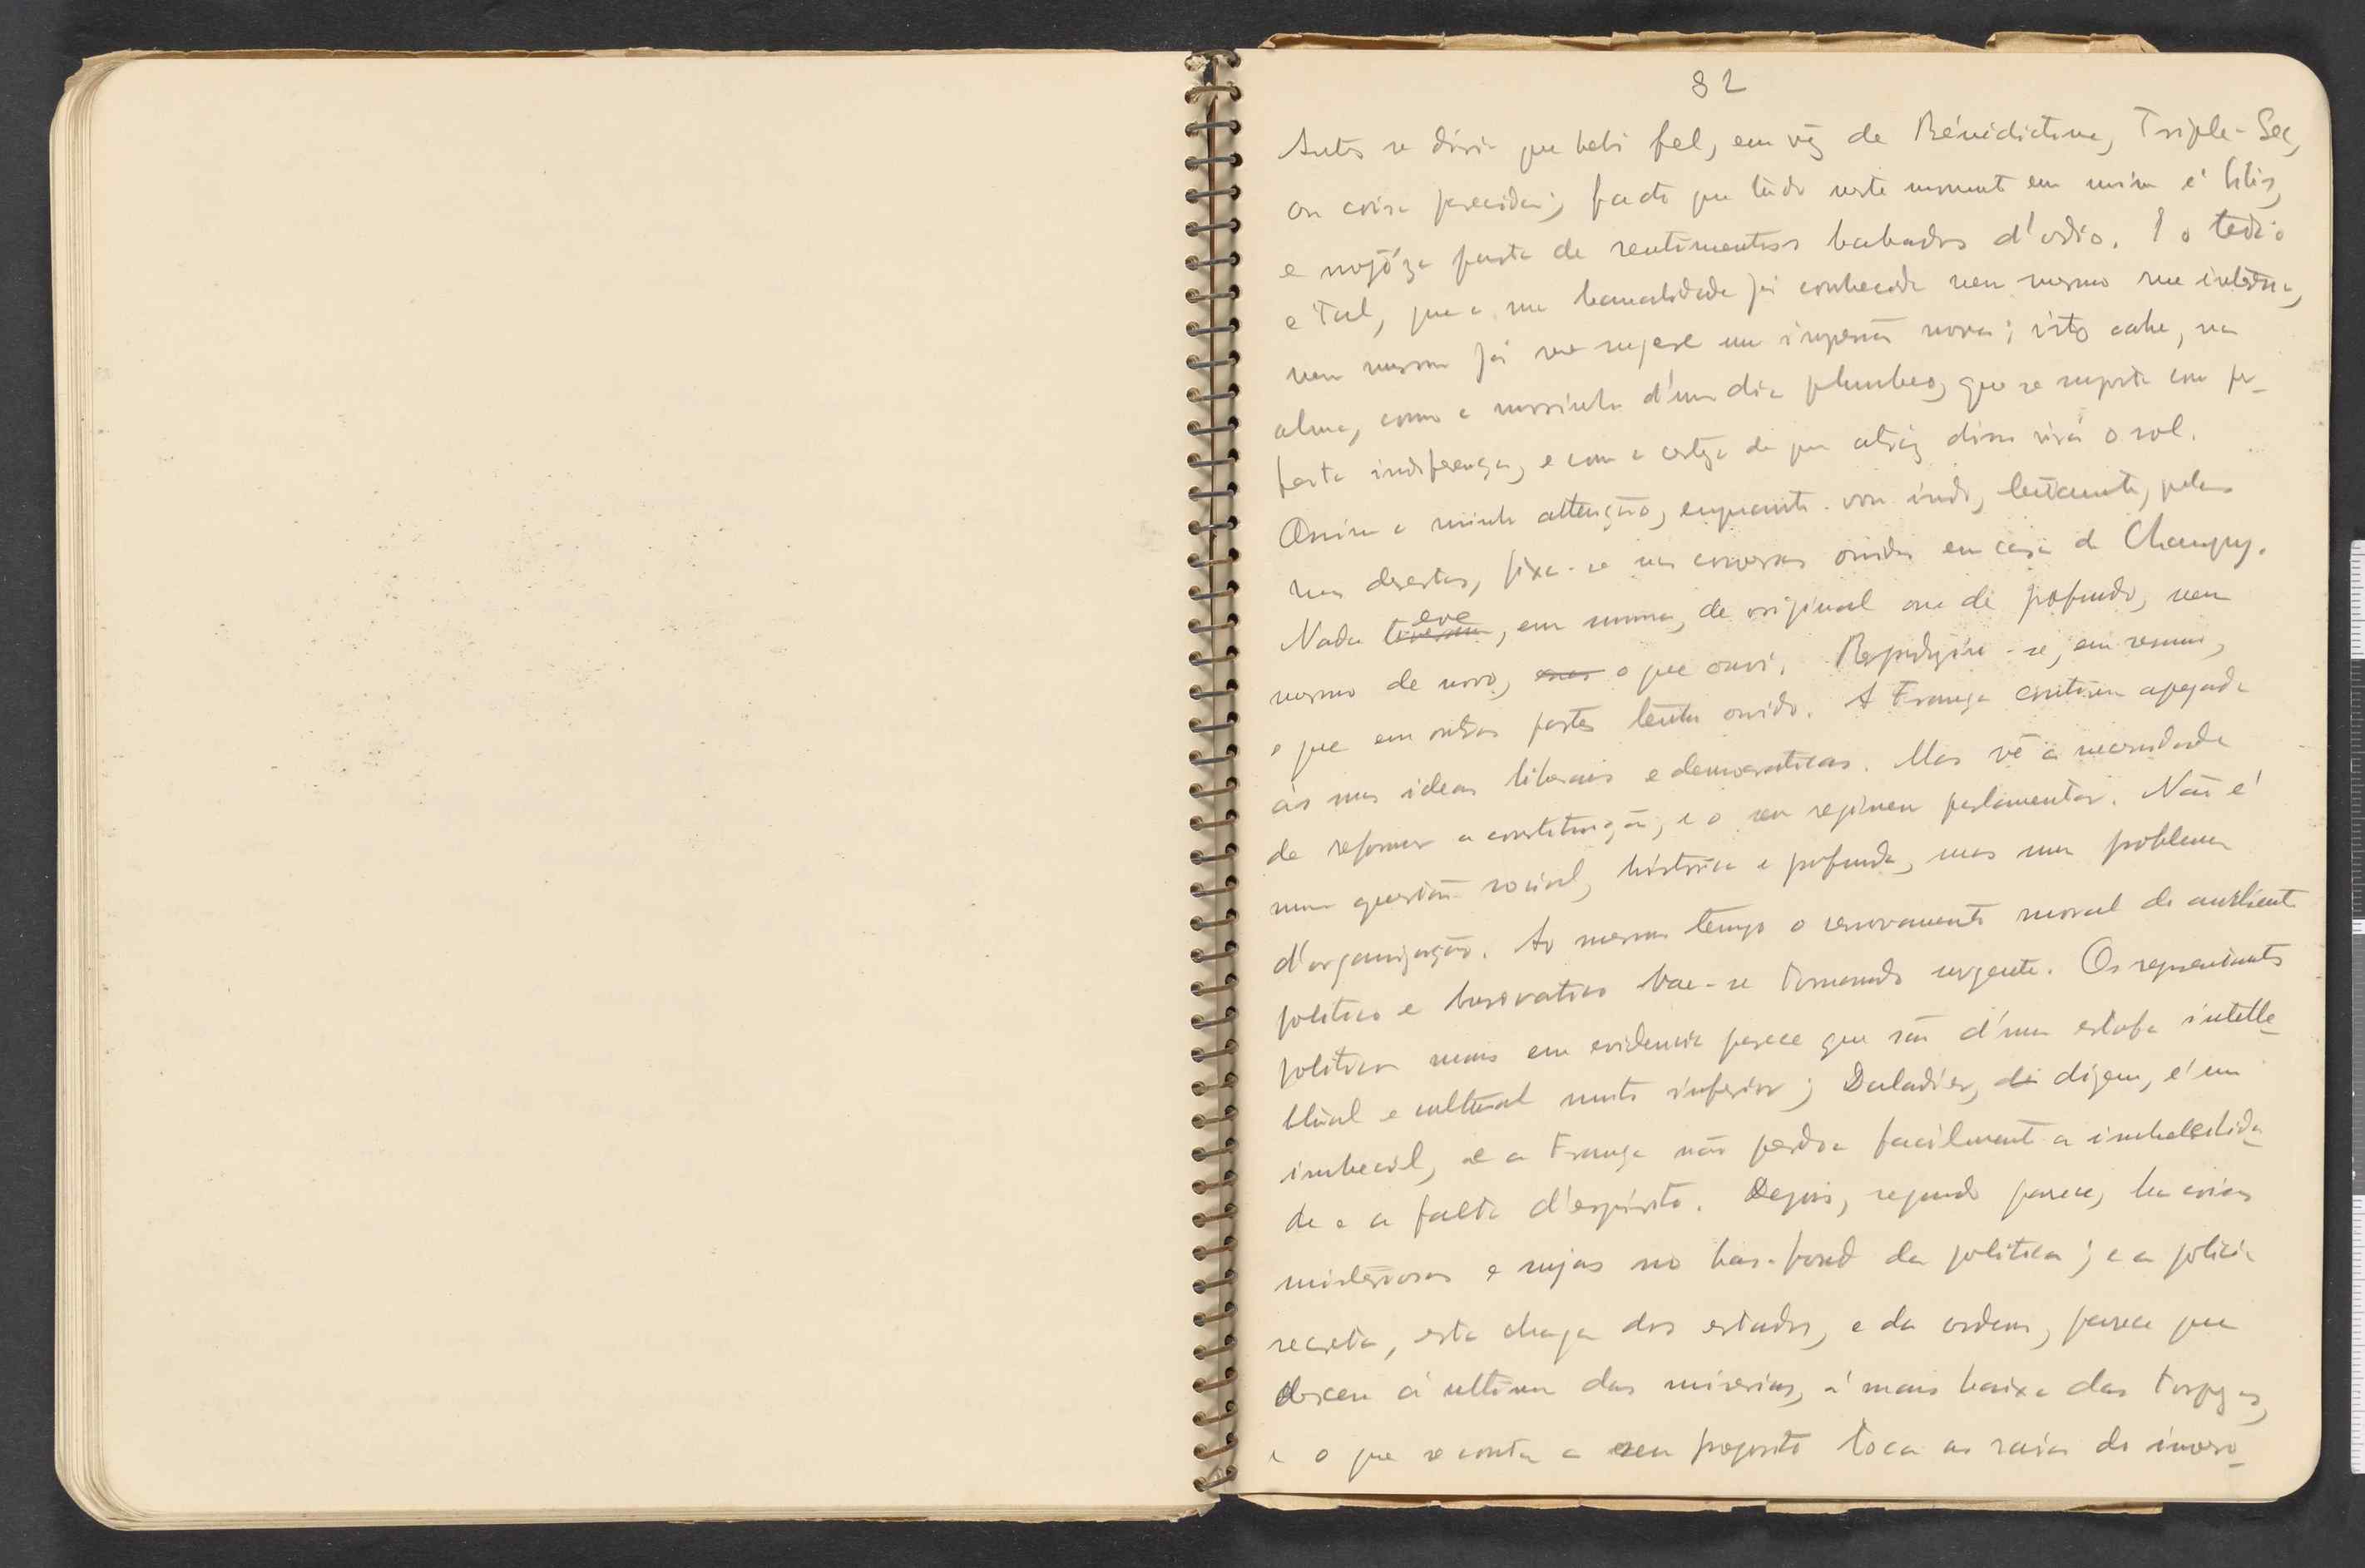 82
Antes se diria que bebi fel, em vêz de Bénédictine, Triple-Sec,
ou coisa parecida; facto que tudo neste momento em mim é bilis,
e nojóza pasta de sentimentos babados d'odio. E o tedio
é tal, que a sua banalidade já conhecida nem mesmo me interessa,
nem mesmo já me sugere um impressão nova; isto cahe, na
alma, como a morrinha d'um dia plumbeo, que se suporta com per-
feita indiferença, e com a certeza de que atráz disso virá o sol.
Assim a minha attenção, enquanto vou indo, lentamente, pelas
ruas desertas, fixa-se nas conversas ouvidas em casa de Champy.
Nada teve, em summa, de original ou de profundo, nem
mesmo de novo, o que ouvi. Repudiam-se, em resumo,
o que em outras partes tenho ouvido. A França continua apegada
às suas ideas liberais e democraticas. Mas vê a necessidade
de reformar a constituição, e o seu regimen parlamentar. Não é
uma questão social, historica e profunda, mas um problema
d'organização. Ao mesmo tempo o renovamento moral do ambiente
politico e burocratico vae-se tornando urgente. Os representantes
politicos mais em evidencia parece que são d'uma estofa intelle-
ctual e cultural muito inferior; Daladier, dizem, é um
imbecil, e a França não perdoa facilmente a imbecilida-
de e a falta d'espirito. Depois, segundo parece, ha coisas
misteriosas e sujas no bas-fond da politica; e a policia
secreta, esta chaga dos estados, e da ordem, parece que
desceu á ultima das miserias, á mais baixa das torpezas,
e o que se conta a seu proposito toca as raias do invero-